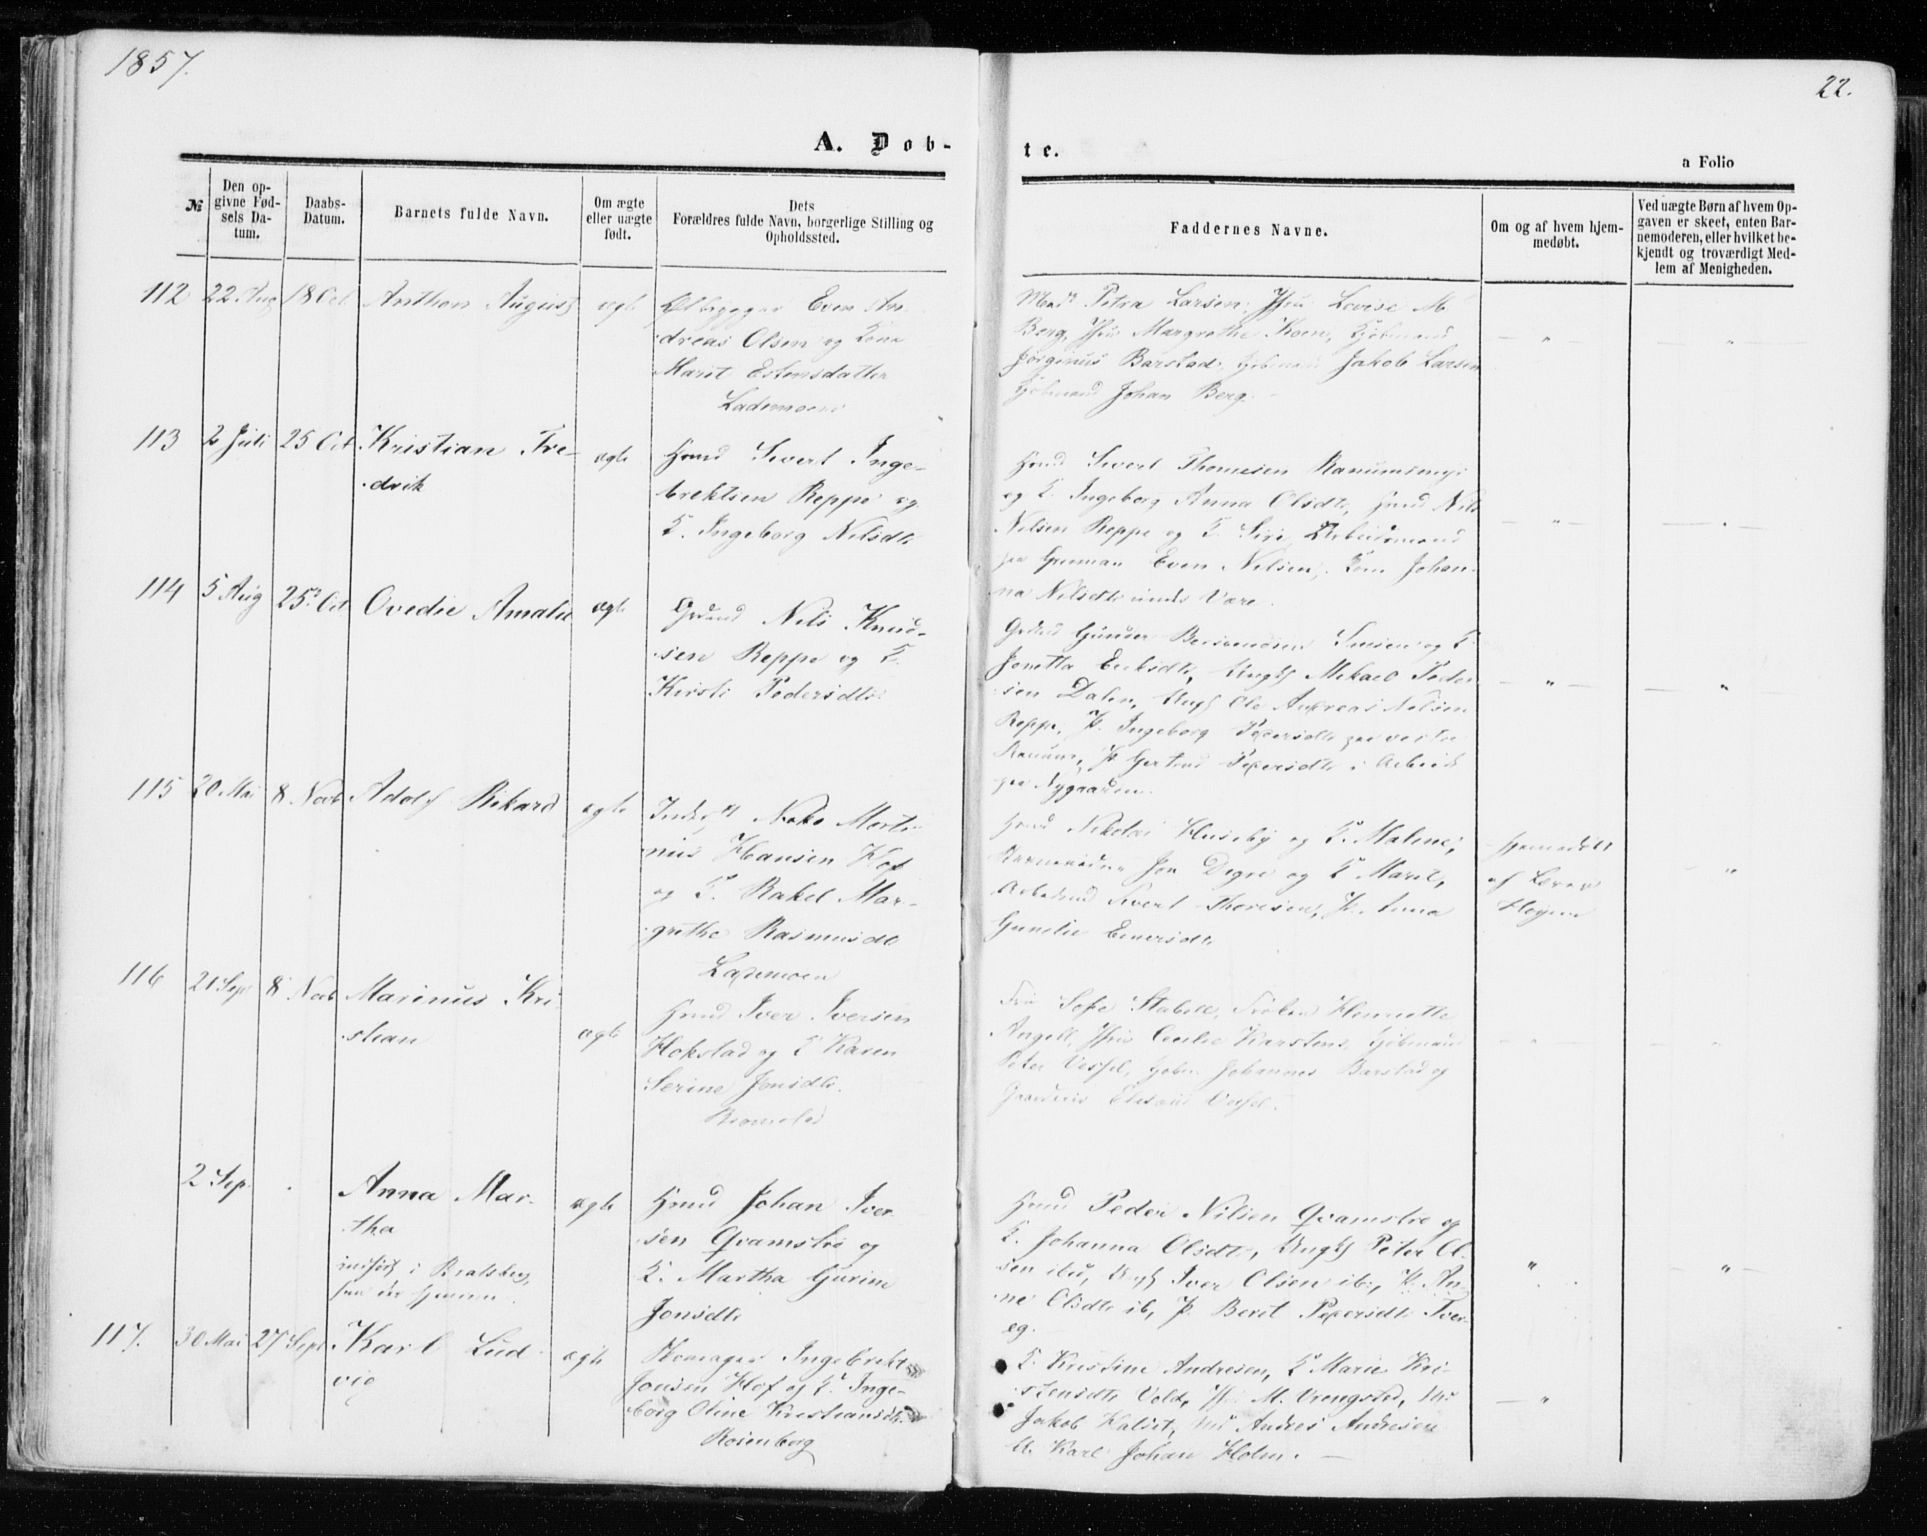 1857.
22.
A. Døb-
te.
a Folio
№
Den op-
givne Fød-
sels Da-
tum.
Daabs-
Datum.
Barnets fulde Navn.
Om ægte
eller uægte
født.
Dets
Forældres fulde Navn, borgerlige Stilling og
Opholdssted.
Faddernes Navne.
Om og af hvem hjem-
medøbt.
Ved uægte Børn af hvem Op-
gaven er skeet, enten Bar-
nemoderen, eller hvilket be-
kjendt og troværdigt Med-
lem af Menigheden.
112 22 Aug 18 Oct Anthon August ægte
Even An-
dreas Olsen og Kone
Marit Estensdatter
Lademoen
Petra Larsen, Jfru Lovise M
Berg, Jfru Margrethe Koen, Kjøbmand
Jørginus Barstad, Kjøbmand Jakob Larsen
Kjøbmand Johan Berg.
113 2 Juli 25 Oct Kristian Fre-
drik
ægte
Hmd Sivert Inge-
brektsen Reppe og
K. Ingeborg Nilsdt.
Hmd Sivert Thomesen
og K. Ingeborg Anna Olsdt., Hmd Nils
Nilsen Reppe og K. Siri, Arbeidsmand
paa Even Nilsen, Kone Johan-
na Nilsdt. Være.
114 5 Aug 25 Oct Ovedie Amalie ægte
Grdmd Nils Knud-
sen Reppe og K.
Kirsti Pedersdt.
Gunder og K.
Jonetta Eriksdt., Ungk Mikael Peder-
sen Dalen, Ungk Ole Andreas Nilsen
Reppe, P. Ingeborg Pedersdt. paa vestre
Ranum, P. Gertrud Pedersdt. i Arbeide
paa Nygaarden.
115 20 Mai 8 Novb Adolf Rikard ægte
Morti-
nus Hansen Hof
og K. Rakel Mar-
grethe Rasmusdt.
Lademoen
Hmd Nikolai Huseby og K. Maline,
Jon Digre og K. Marit,
Sivert Thoresen, P. Anna
Gunelie Einersdt.
Hjemmedøbt
af Lærer
116 21 Sep 8 Novb Marinus Kri-
stian
ægte
Hmd Iver Iversen
Hokstad og K. Karen
Serine Jonsdt.
Bromstad
Fru Sofie Stabell, Frøken Henriette
Angell, Jfru Cecilie Karstens, Kjøbmand
Peter Vessel, Kjøbm Johannes Barstad og
Vessel.
2 Sep.
Anna Mar-
tha
indført i Bratsberg,
ægte
Hmd Johan Iver-
sen Qvamstrø og
K. Martha Gurine
Jonsdt.
Hmd Peder Nilsen Qvamstrø og
K. Johanna Olsdt., Ungk Peter Ol-
sen ibid, Ungk Iver Olsen ib., P. An-
ne Olsdt. ib, P. Berit Pedersdt. Tver-
eg.
117. 30 Mai 27 Sept Karl Lud-
vig
ægte
Skomager Ingebrekt
Jonsen Hof og K. Inge-
borg Oline Kristiansdt.
Rosenborg
K. Kristine Andresen, K. Marie Kri-
stensdt. Vold, Jfr M. Vrengsted,
Jakob Kalset, Andres Andresen
U. Karl Johan Holm.